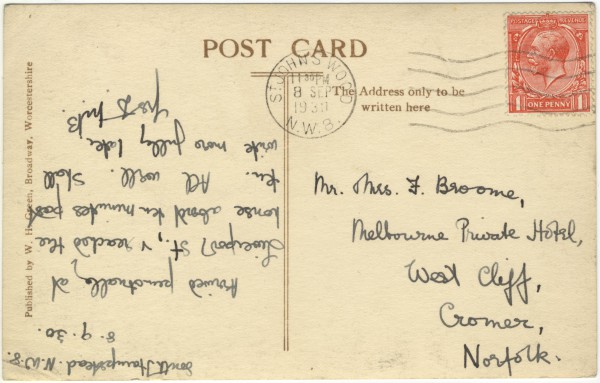 POST CARD
The Address only to be
written here
ST JOHN'S WOOD
11 30 PM
8 SEP
1930
N.W.8.
POSTAGE REVENUE
1 ONE PENNY 1
Published by W. H. Green, Broadway, Worcestershire
South Hampstead. N.W.8.
8.9.30.
Arrived punctually, at
Liverpool St, & reached the
house about ten minutes past
ten. All well. Shall
write more fully later,
Mr. Mrs. F. Broome,
Melbourne Private Hotel,
West Cliff,
Cromer,
Norfolk.